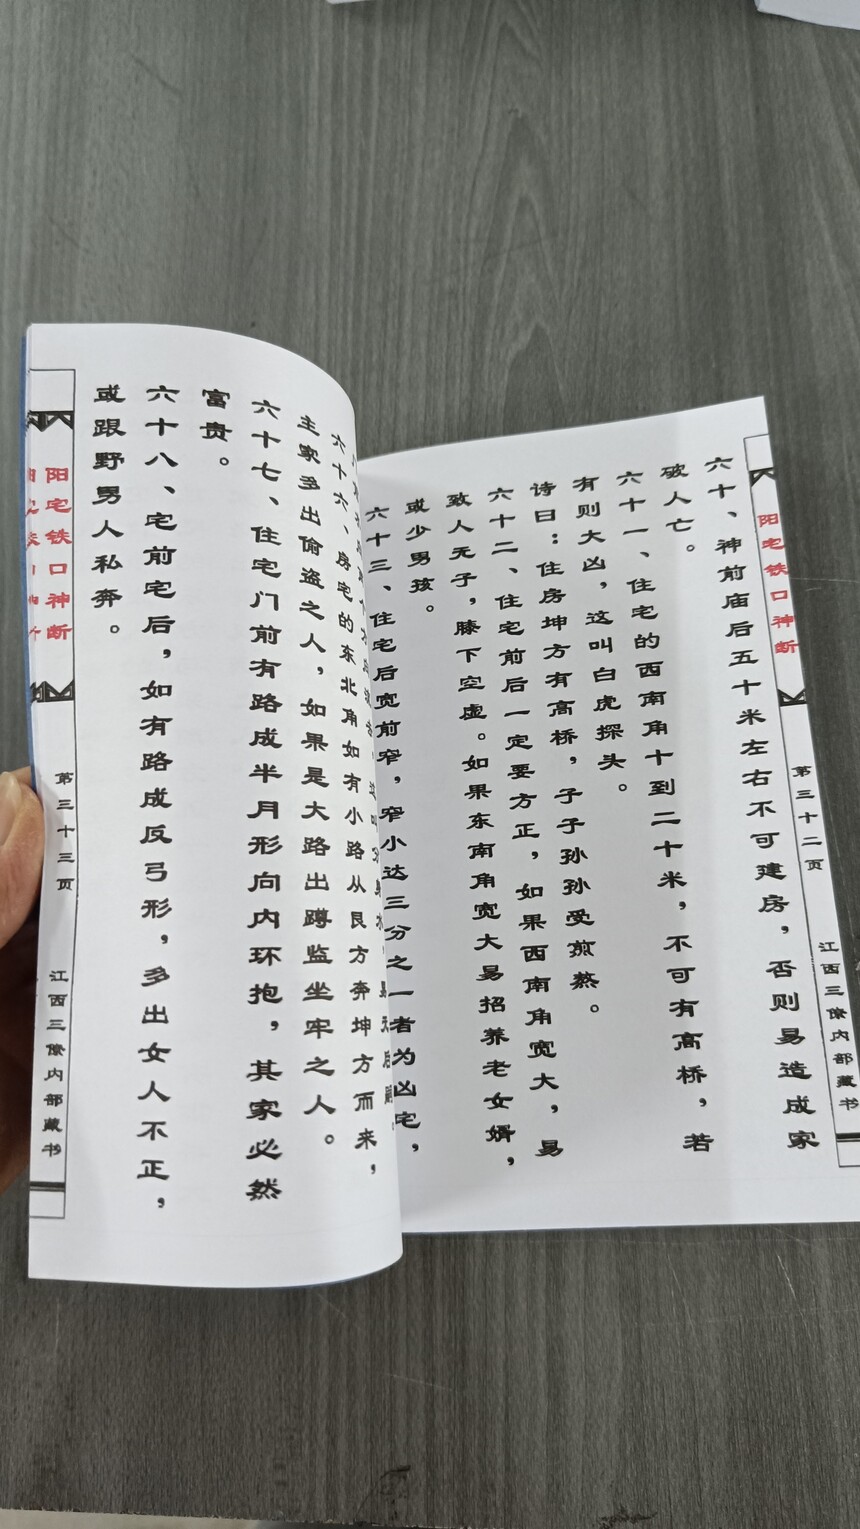 阳宅铁口神断
第三十二页
江西三僚内部藏书
六十、神前庙后五十米左右不可建房，否则易造成家
破人亡。
六十一、住宅的西南角十到二十米，不可有高桥，若
有则大凶，这叫白虎探头。
诗曰：住房坤方有高桥，子子孙孙受煎熬。
六十二、住宅前后一定要方正，如果西南角宽大，易
致人无子，膝下空虚。如果东南角宽大易招养老女婿，
或少男孩。
六十三、住宅后宽前窄，窄小达三分之一者为凶宅，
六十六、房宅的东北角如有小路从艮方奔坤方而来，
主家多出偷盗之人，如果是大路出蹲监坐牢之人。
六十七、住宅门前有路成半月形向内环抱，其家必然
富贵。
六十八、宅前宅后，如有路成反弓形，多出女人不正，
或跟野男人私奔。
阳宅铁口神断
第三十三页
江西三僚内部藏书